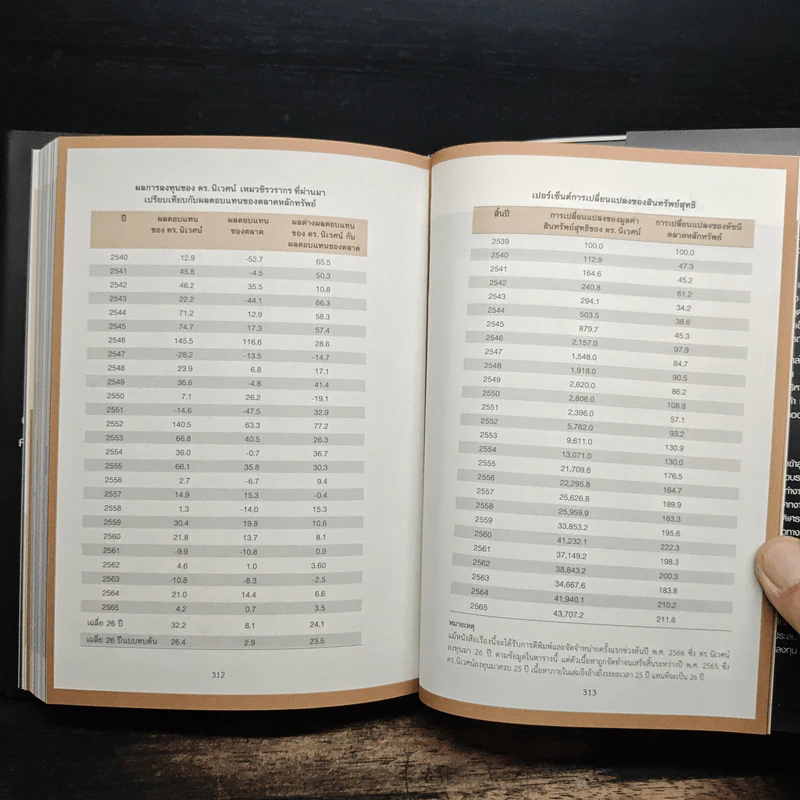 ผลการลงทุนของ ดร. นิเวศน์ เหมวชิรวรากร ที่ผ่านมา
เปรียบเทียบกับผลตอบแทนของตลาดหลักทรัพย์
ปี ผลตอบแทน ผลตอบแทน ผลต่างผลตอบแทน
ของ ดร. นิเวศน์ ของตลาด ของ ดร. นิเวศน์ กับ
ผลตอบแทนของตลาด
2540 12.9 -52.7 65.5
2541 45.8 -4.5 50.3
2542 46.2 35.5 10.8
2543 22.2 -44.1 66.3
2544 71.2 12.9 58.3
2545 74.7 17.3 57.4
2546 145.5 116.6 28.6
2547 -28.2 -13.5 -14.7
2548 23.9 6.8 17.1
2549 36.6 -4.8 41.4
2550 7.1 26.2 -19.1
2551 -14.6 -47.5 32.9
2552 140.5 63.3 77.2
2553 66.8 40.5 26.3
2554 36.0 -0.7 36.7
2555 66.1 35.8 30.3
2556 2.7 -6.7 9.4
2557 14.9 15.3 -0.4
2558 1.3 -14.0 15.3
2559 30.4 19.8 10.6
2560 21.8 13.7 8.1
2561 -9.9 -10.8 0.9
2562 4.6 1.0 3.60
2563 -10.8 -8.3 -2.5
2564 21.0 14.4 6.6
2565 4.2 0.7 3.5
เฉลี่ย 26 ปี 32.2 8.1 24.1
เฉลี่ย 26 ปีแบบทบต้น 26.4 2.9 23.5
312
เปอร์เซ็นต์การเปลี่ยนแปลงของสินทรัพย์สุทธิ
สิ้นปี การเปลี่ยนแปลงของมูลค่า การเปลี่ยนแปลงของดัชนี
สินทรัพย์สุทธิของ ดร. นิเวศน์ ตลาดหลักทรัพย์
2539 100.0 100.0
2540 112.9 47.3
2541 164.6 45.2
2542 240.8 61.2
2543 294.1 34.2
2544 503.5 38.6
2545 879.7 45.3
2546 2,157.0 97.9
2547 1,548.0 84.7
2548 1,918.0 90.5
2549 2,620.0 86.2
2550 2,806.0 108.8
2551 2,396.0 57.1
2552 5,762.0 93.2
2553 9,611.0 130.9
2554 13,071.0 130.0
2555 21,709.6 176.5
2556 22,295.8 164.7
2557 25,626.8 189.9
2558 25,959.9 163.3
2559 33,853.2 195.6
2560 41,232.1 222.3
2561 37,149.2 198.3
2562 38,843.2 200.3
2563 34,667.6 183.8
2564 41,940.1 210.2
2565 43,707.2 211.6
หมายเหตุ
แม้หนังสือเรื่องนี้จะได้รับการตีพิมพ์และจัดจำหน่ายครั้งแรกช่วงต้นปี พ.ศ. 2566 ซึ่ง ดร. นิเวศน์
ลงทุนมา 26 ปี ตามข้อมูลในตารางนี้ แต่ตัวเนื้อหาถูกจัดทำจนเสร็จสิ้นระหว่างปี พ.ศ. 2565 ซึ่ง
ดร. นิเวศน์ลงทุนมาครบ 25 ปี เนื้อหาภายในเล่มจึงอ้างถึงระยะเวลา 25 ปี แทนที่จะเป็น 26 ปี
313